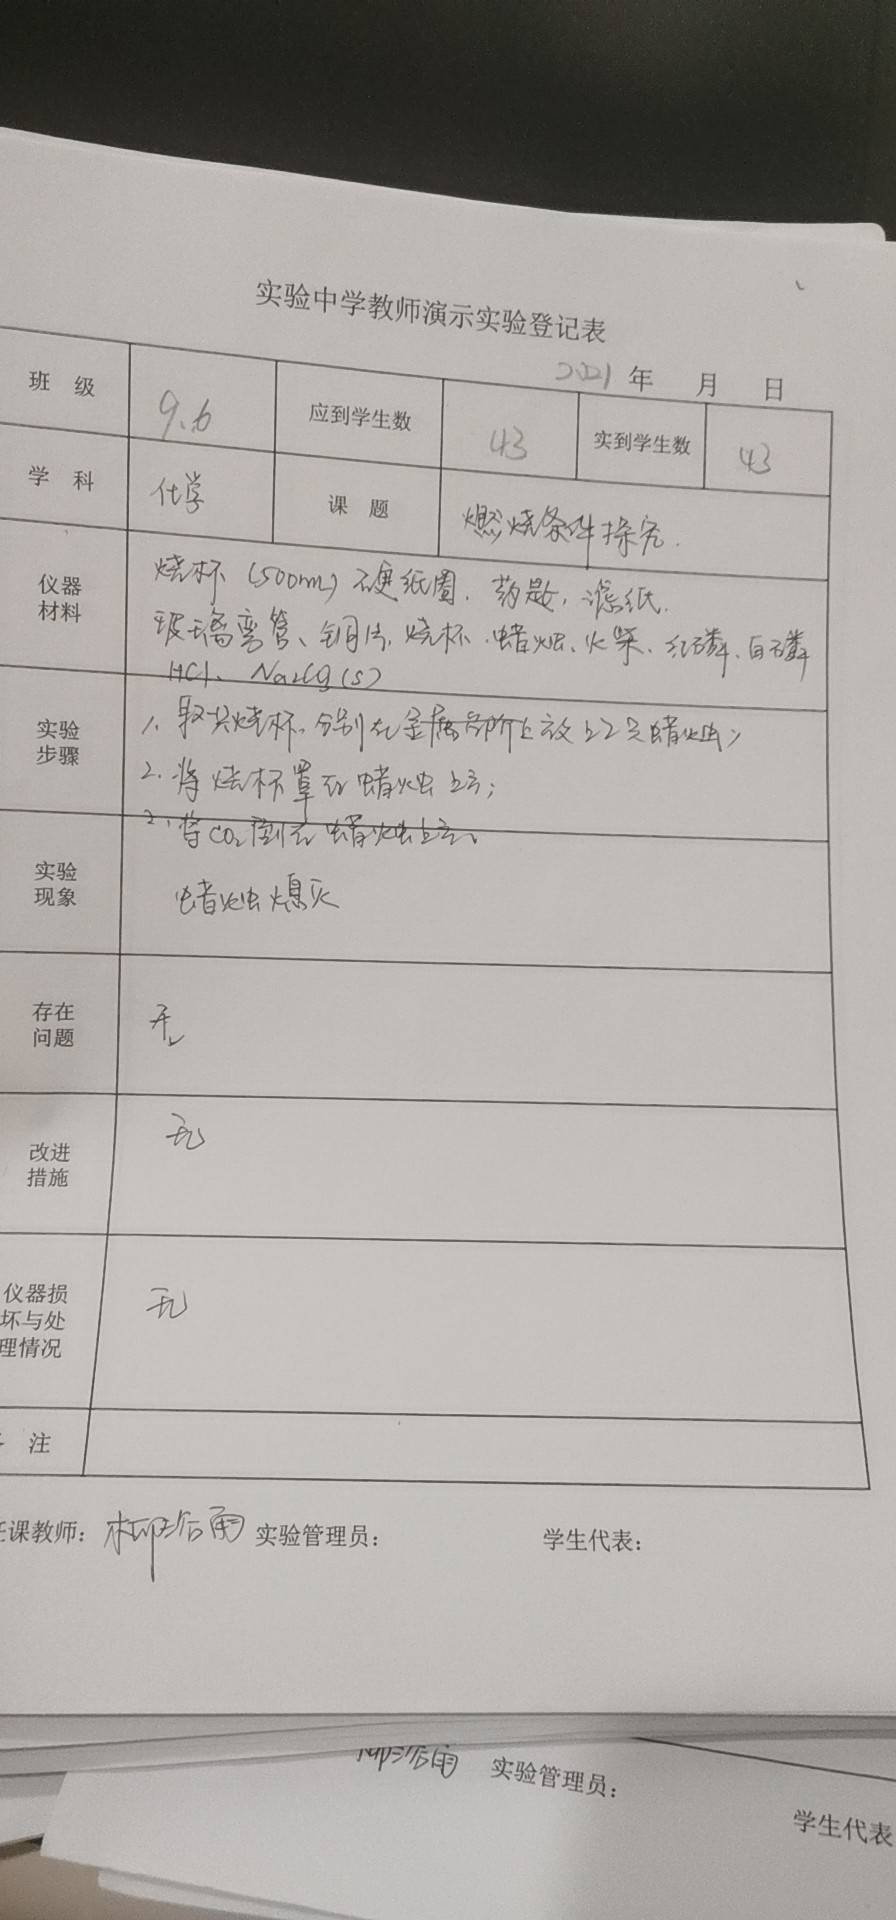 实验中学教师演示实验登记表
2021 年 月 日
班 级 9.6 应到学生数 43 实到学生数 43
学 科 化学 课 题 燃烧条件探究.
仪器材料
烧杯 (500ml) 硬纸圈. 药匙, 滤纸.
玻璃弯管、铜片, 烧杯. 蜡烛、火柴、红磷、白磷
HCl、Na2CO3(s)
实验步骤
1. 取烧杯, 分别在金属阶上放上2只蜡烛;
2. 将烧杯罩在蜡烛上方;
3. 将CO2倒在蜡烛上方。
实验现象
蜡烛熄灭
存在问题
无
改进措施
无
仪器损坏与处理情况
无
注
课教师: 实验管理员: 学生代表:
实验管理员:
学生代表